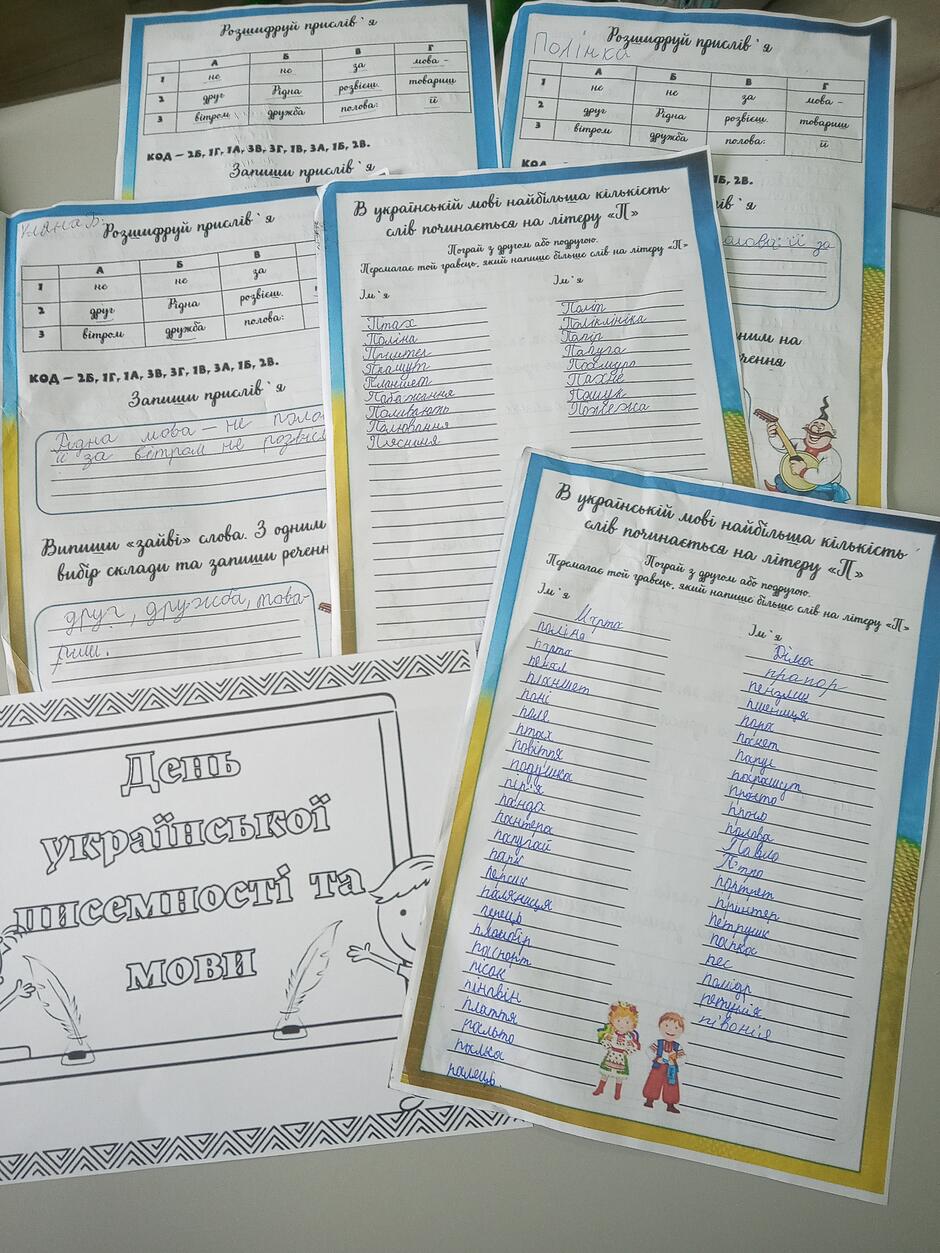 Розшифруй прислів`я
А Б В Г
1 не не за мова –
2 друг Рідна розвієш. товариш
3 вітром дружба полова: її
КОД – 2Б, 1Г, 1А, 3В, 3Г, 1В, 3А, 1Б, 2В.
Запиши прислів`я
Полінка
Розшифруй прислів`я
А Б В Г
1 не не за мова –
2 друг Рідна розвієш. товариш
3 вітром дружба полова: її
1Б, 2В.
полова: її за
Уляна Б.
Розшифруй прислів`я
А Б В
1 не не за
2 друг Рідна розвієш.
3 вітром дружба полова:
КОД – 2Б, 1Г, 1А, 3В, 3Г, 1В, 3А, 1Б, 2В.
Запиши прислів`я
Рідна мова – не поло
її за вітром не розвієш
Випиши «зайві» слова. З одним
вибір склади та запиши речен
друг, дружба, това-
риш.
В українській мові найбільша кількість
слів починається на літеру «П»
Пограй з другом або подругою.
Перемагає той гравець, який напише більше слів на літеру «П»
Ім`я
Птах
Поліна
Принтер
Планшет
Побажання
Поливають
Полювання
Ім`я
Поліклініка
Папір
Папуга
Пахне
Пошук
Пожежа
В українській мові найбільша кількість
слів починається на літеру «П»
Пограй з другом або подругою.
Перемагає той гравець, який напише більше слів на літеру «П»
Ім`я
Марта
поліно
парта
пенал
планшет
пані
поле
птах
повітря
подушка
пір'я
панда
пантера
папугай
парк
персик
паляниця
перець
пломбір
паспорт
пісок
пінгвін
плаття
пальто
палка
палець.
Ім`я
Діма
прапор
пензлик
пшениця
пара
пакет
парус
парашут
просто
прано
полова
Павло
Петро
портрет
принтер
петрушк
папка
пес
помідр
петунія
півонія
День
української
писемності та
мови